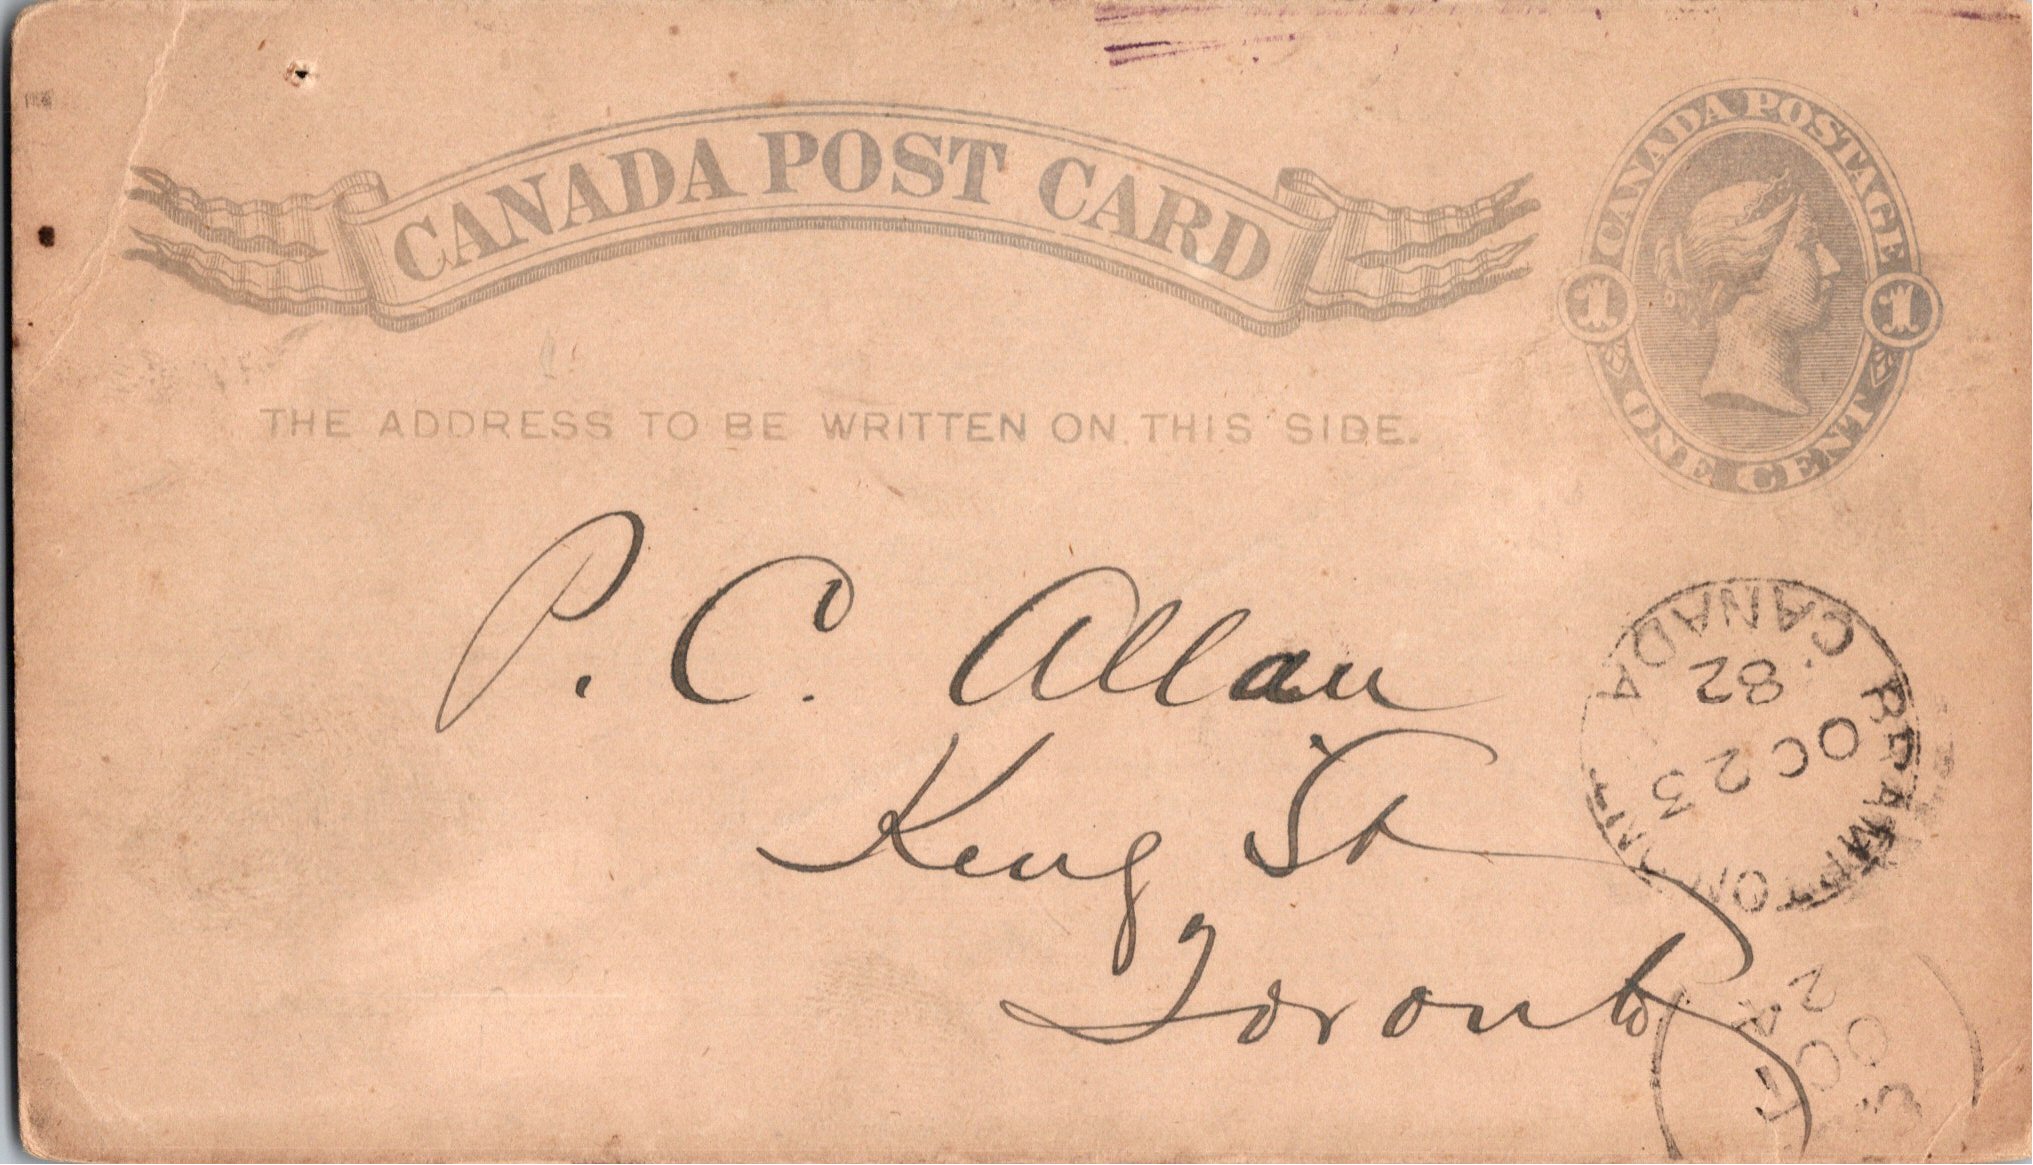 CANADA POST CARD
CANADA POSTAGE
1 1
ONE CENT
THE ADDRESS TO BE WRITTEN ON THIS SIDE.
P. C. Allan
King St
Toronto
BRAMPTON ONT
CANADA
OC 23
82
OC 24